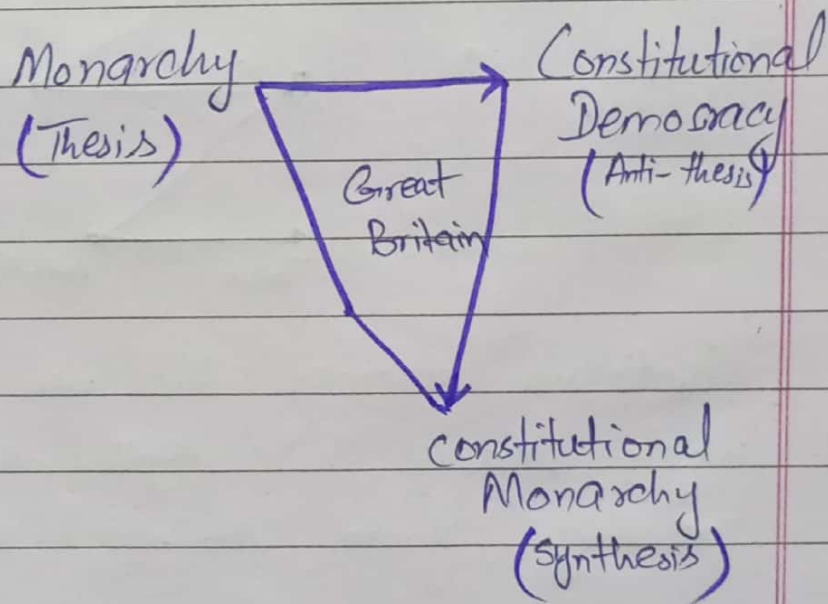 Monarchy
(Thesis)
Constitutional
Democracy
(Anti-thesis)
Great
Britain
constitutional
Monarchy
(Synthesis)